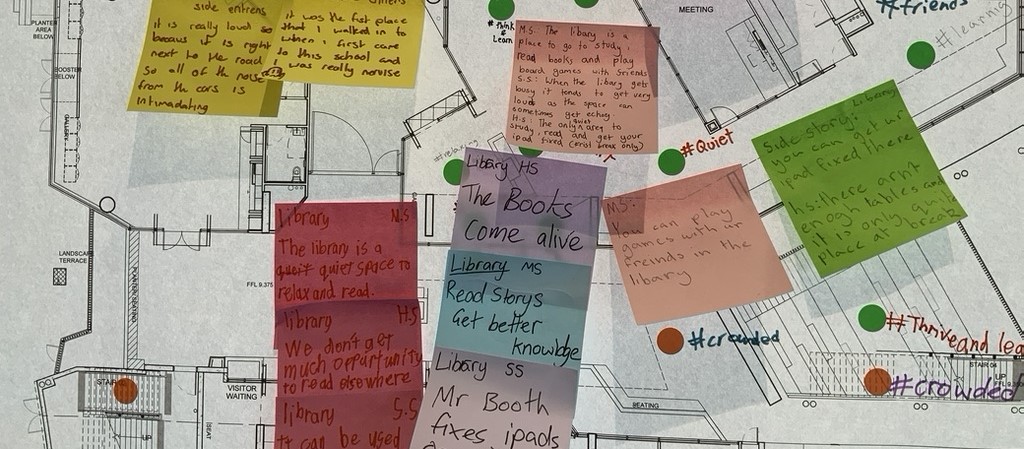 side entrens
it is really loud so
becaus it is right
next to the road
so all of the noise
from the cars is
intimadating
it was the fist place
that I walked in to
when i first came
to this school and
I was really nervise
#think
&
Learn
M.S: The libary is a
place to go to study,
read books and play
board games with friends
S.S: When the libary gets
busy it tends to get very
loud as the space can
sometimes get echoey.
H.S: The only quiet area to
study, read and get your
ipad fixed
MEETING
#friends
#learning
PLANTER
AREA
BELOW
BOOSTER
BELOW
GALLERY
#relaxing
#Quiet
side story: Liberery
you can get ur
ipad fixed there
hs: there arnt
enogh tables and
it is only quite
place at break
Library HS
The Books
Come alive
M.S:
You can play
games with ur
freinds in the
libary
library M.S
The library is a
quiet space to
relax and read.
Library MS
Read Storys
Get better
knowldge
LANDSCAPE
TERRACE
FFL 9.375
library H.S
We don't get
much opportunity
to read elsewhere
#crowded
#Thrive and lea
Library SS
Mr Booth
fixes ipads
STAIR
UP
VISITOR
WAITING
SEAT
SEATING
STAIR 04
UP
#crowded
library S.S
It can be used